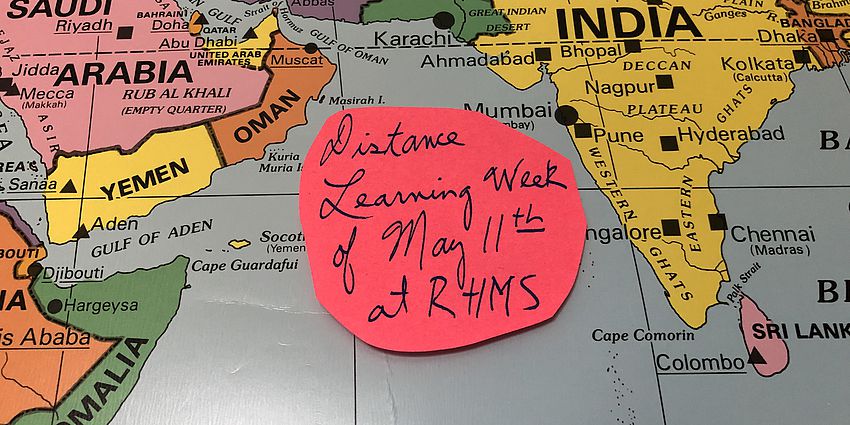 SAUDI
Riyadh
ARABIA
Jidda
Mecca
(Makkah)
RUB AL KHALI
(EMPTY QUARTER)
ASIR
BAHRAIN
Doha
QATAR
Abu Dhabi
UNITED ARAB
EMIRATES
GULF
Strait of Hormuz
GULF OF OMAN
Muscat
OMAN
Masirah I.
Kuria
Muria I
YEMEN
Sanaa
Aden
GULF OF ADEN
Socot
(Yemen
Cape Guardafui
BOUTI
Djibouti
Hargeysa
IA
is Ababa
OMALIA
Distance
Learning Week
of May 11th
at RHMS
Karachi
GREAT INDIAN
DESERT
INDIA
PLAIN
Ganges
Brahm
BANGLAD
Dhaka
Ahmadabad
Bhopal
Kolkata
(Calcutta)
DECCAN
Nagpur
PLATEAU
GHATS
Mumbai
bay)
Pune
Hyderabad
WESTERN
GHATS
EASTERN
ngalore
Chennai
(Madras)
BA
BE
Palk Strait
Cape Comorin
SRI LANK
Colombo